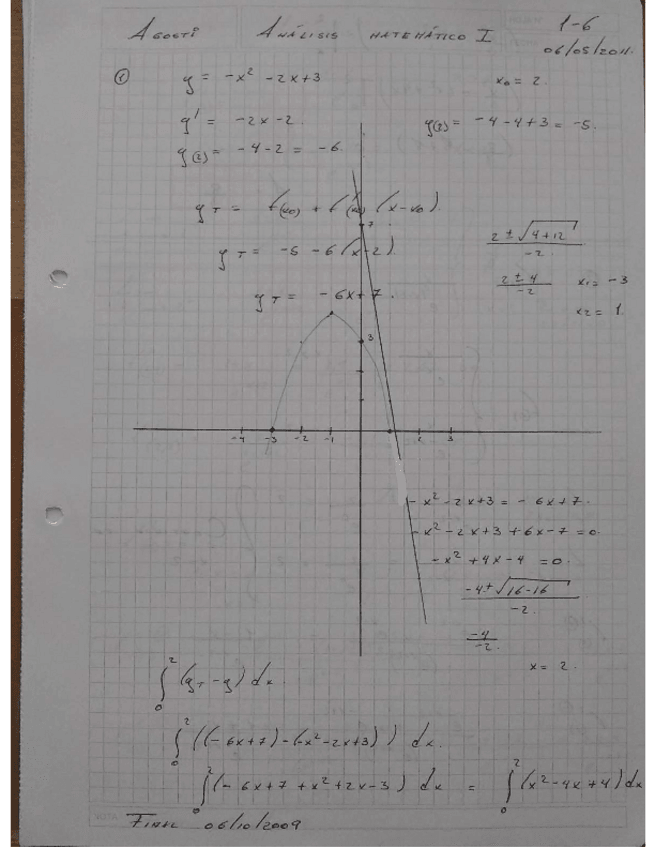 AGOSTI ANÁLISIS MATEMÁTICO I 1-6
06/05/2011.
① y = -x² -2x+3 x₀ = 2.
y' = -2x-2. y(2) = -4-4+3 = -5.
y'(2) = -4-2 = -6.
y T = f(x₀) + f'(x₀) (x-x₀).
7
y T = -5 -6(x-2)
2 ± √4+12
-2.
y T = -6x+7.
2 ± 4 x₁ = -3
-2
x₂ = 1.
3
-4 -3 -2 -1 2 3
-x² -2x+3 = -6x+7.
-x² -2x+3 +6x-7 = 0.
-x² +4x-4 = 0.
-4 ± √16-16
-2.
-4
-2.
x = 2.
∫₀² (yT - y) dx.
∫₀² ((-6x+7)-(-x²-2x+3)) dx.
∫₀² (-6x+7+x²+2x-3) dx = ∫₀² (x²-4x+4) dx
FINAL 06/10/2009